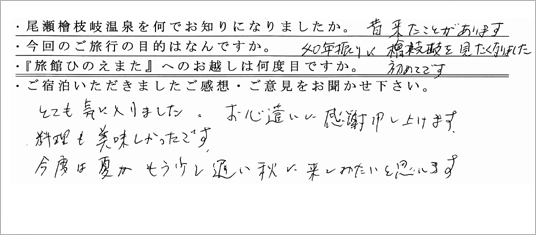 ・尾瀬檜枝岐温泉を何でお知りになりましたか。 昔来たことがあります
・今回のご旅行の目的はなんですか。 40年振りに檜枝岐を見たくなりました
・『旅館ひのえまた』へのお越しは何度目ですか。 初めてです
・ご宿泊いただきましたご感想・ご意見をお聞かせ下さい。
とても気に入りました。お心遣いに感謝申し上げます。
料理も美味しかったです。
今度は夏か もう少し遅い秋に来てみたいと思います